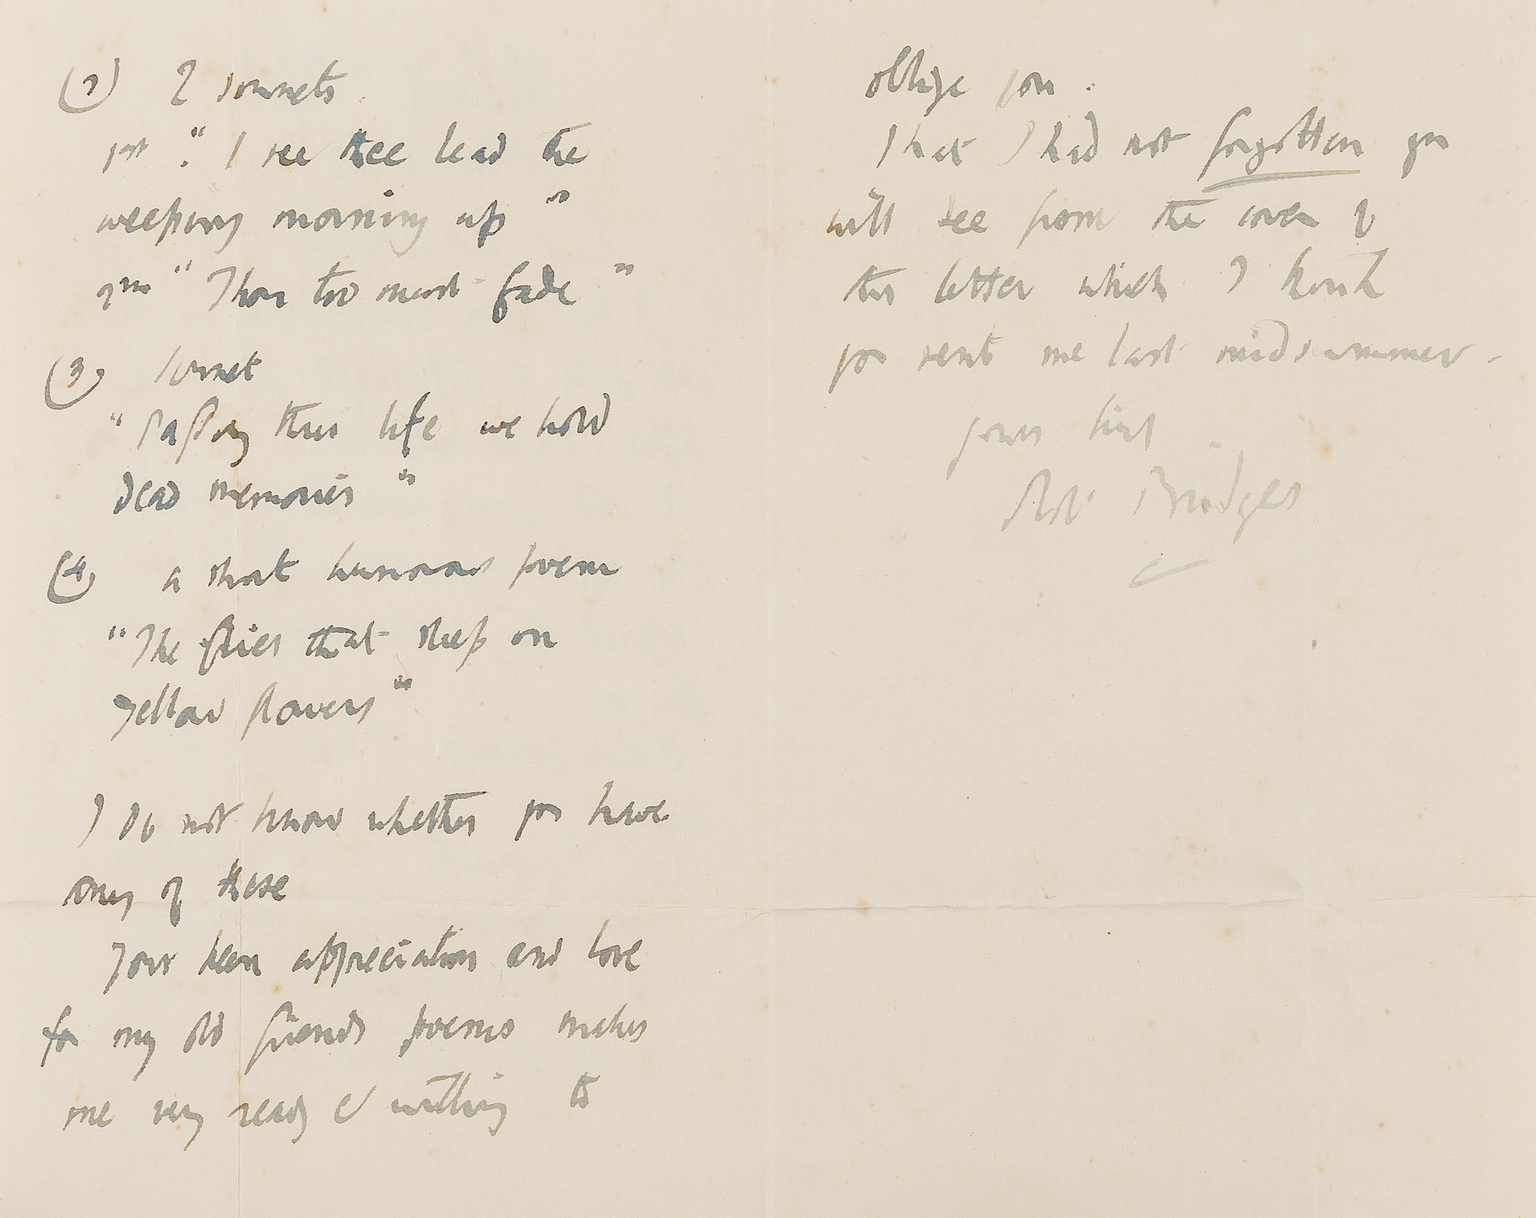 (2) 2 sonnets.
1st. "I see thee lead the
weeping morning up"
2nd "Thou too must fade"
(3) Sonnet
"Passing this life we hold
dead memories"
(4) a short humorous poem
"The flies that sleep on
yellow flowers"
I do not know whether you have
any of these
Your keen appreciation and love
for my old friends poems makes
me very ready & willing to
oblige you.
That I had not forgotten you
will see from the cover of
this letter which I think
you sent me last midsummer.
yours
Rbt. Bridges